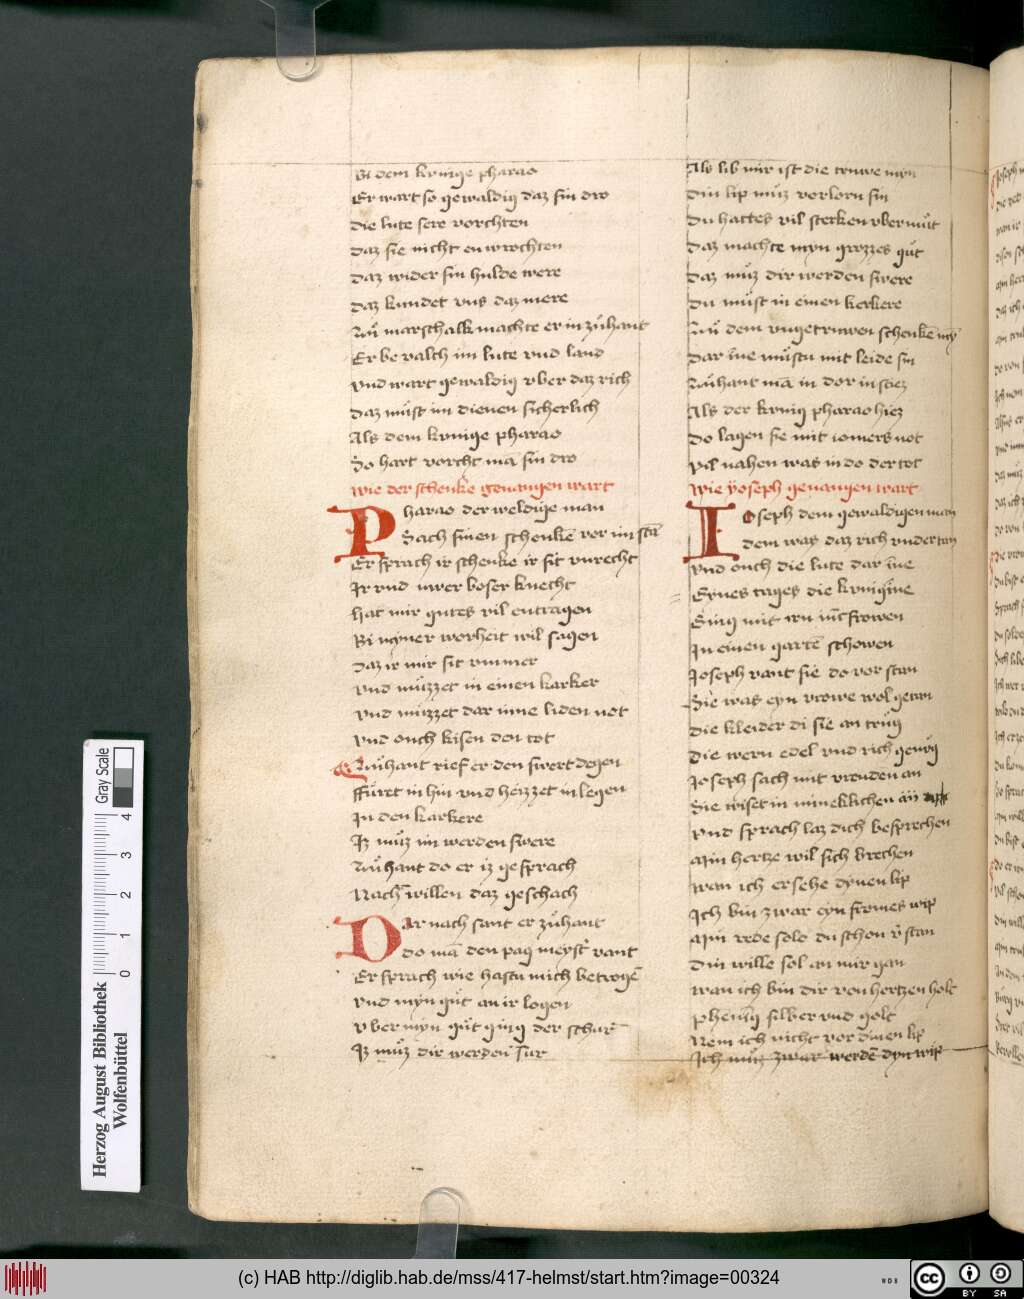 Bi dem kunige pharao
Er wart so gewaldig daz sin dro
die lute sere vorchten
daz sie nicht en worchten
daz wider sin hulde were
daz kundet uns daz mere
Zuͦ marschalk machte er in zuͦhant
Er be valch im lute und land
und wart gewaldig uber daz rich
daz muͦst im dienen sicherlich
Als dem kunige pharao
So hart vorcht mā sin dro
wie der schenke gevangen wart
Pharao der weldige man
Sach sinen schenkē vor im stā
Er sprach ir schenke ir sit unrecht
Ir und uwer boser knecht
hat mir gutes vil entragen
Bi myner worheit wil sagen
daz ir mir sit ummer
und muͦzzet in einen karker
und muzzet dar inne liden not
und ouch kisen den tot
Zuͦhant rief er den swert degen
ffuͦret in hin und heizzet in legen
In den karkere
Iz muͦz im werden swere
Zuͦhant do er iz gesprach
Nach willen daz geschach
Dar nach sant er zuͦhant
do mā den pag meyst vant
Er sprach wie hastu mich betrogē
und myn guͦt an ir logen
uber myn guͦt ging der schur
Iz muͦz dir werden sur
Als lib mir ist die truwe myn
din lip muͦz verlorn sin
du hattes vil sterken ubermuͦt
daz machte myn grozzes guͦt
daz muͦz dir werden swere
du muͦst in einen kerkere
Zuͦ dem ungetruwen schenkē my
dar ine muͦstu mit leide sin
Zuͦhant mā in dor in stiez
Als der kunig pharao hiez
do lagen sie mit iomers not
vil nahen was in do der tot
wie yoseph gevangen wart
Ioseph dem gewaldigen man
dem was daz rich undertan
und ouch die lute dar ine
Eynes tages die kunigine
Ging mit irn iūcfrowen
In einen gartē schowen
Joseph vant sie do vor stan
Sie was eyn vrowe wol getan
die kleider di sie an truͦg
die wern edel und rich genuͦg
Joseph sach mit vreuden an
Sie wiset in mineklichen an
und sprach laz dich besprechen
Min hertze wil sich brechen
wan ich ersehe dynen lip
Ich bin zwar eyn fromes wip
Min rede solo du schon v̄ stan
din wille sol an mir gan
wan ich bin dir von hertzen holt
phennīg silber und golt
Nem ich nicht vor dinen lip
Ich muͦz zwar werdē dyn wip
Herzog August Bibliothek
Wolfenbüttel
0 1 2 3 4
Gray Scale
(c) HAB http://diglib.hab.de/mss/417-helmst/start.htm?image=00324
WDB
cc BY SA